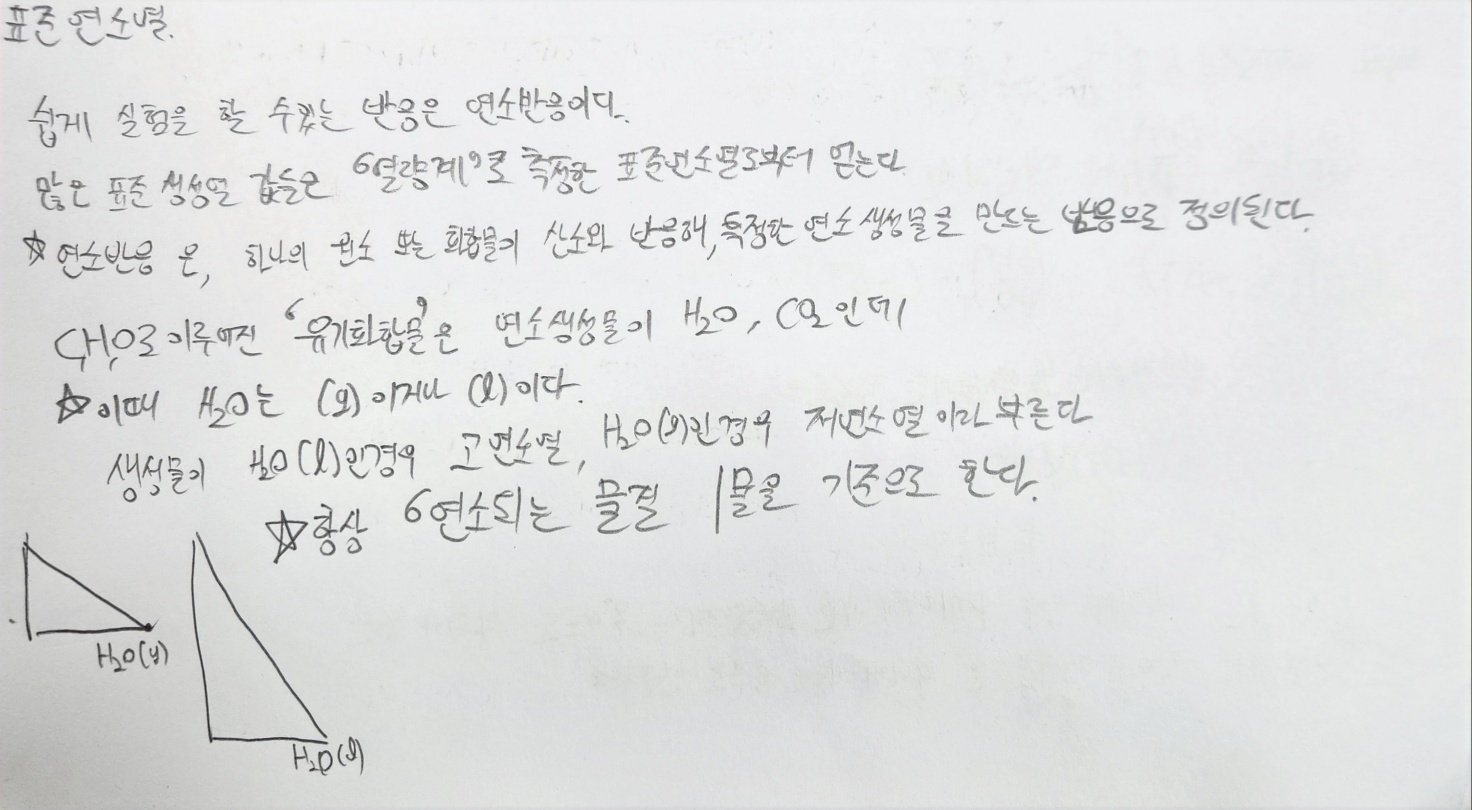 표준연소열.
쉽게 실험을 할 수있는 반응은 연소반응이다.
많은 표준생성열 값들은 '열량계'로 측정한 표준연소열로부터 얻는다.
☆ 연소반응 은, 하나의 원소 또는 화합물이 산소와 반응해, 특정한 연소생성물을 만드는 반응으로 정의된다.
C,H,O로 이루어진 '유기화합물'은 연소생성물이 H2O, CO2인데
☆이때 H2O는 (g)이거나 (l)이다.
생성물이 H2O(l)인경우 고연소열, H2O(g)인경우 저연소열이라 부른다
☆항상 '연소되는 물질 1몰을 기준으로 한다.
H2O(g)
H2O(l)